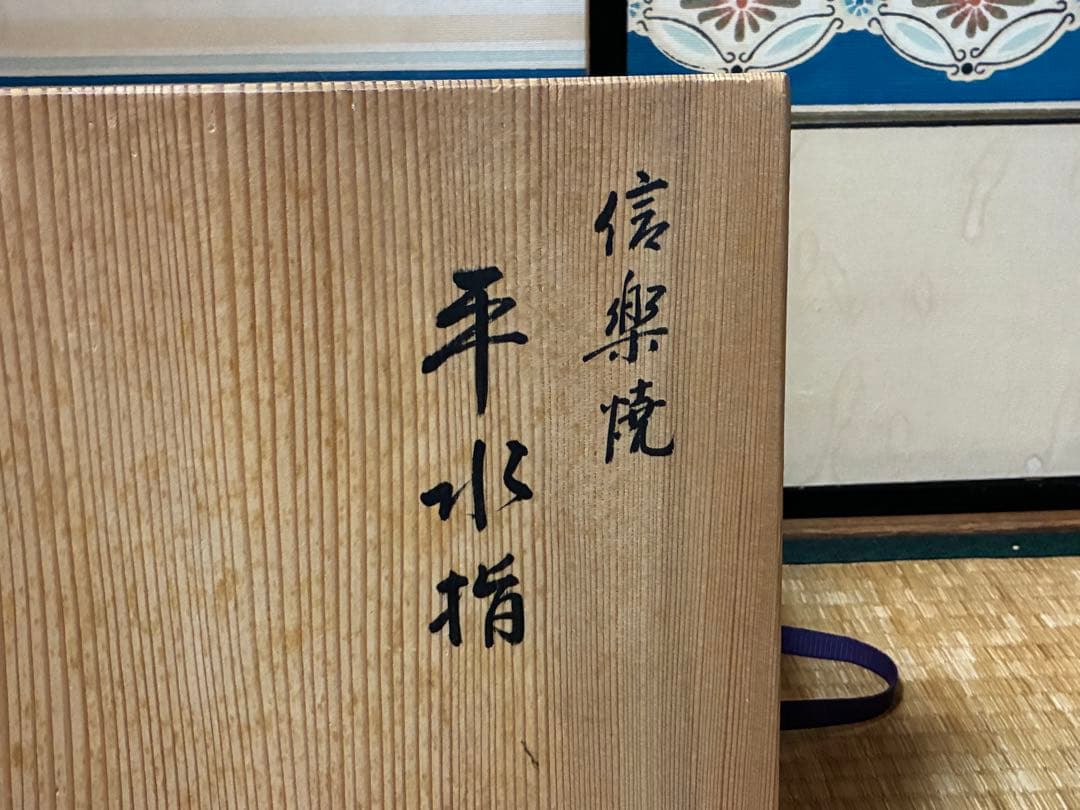 信樂燒
平水指